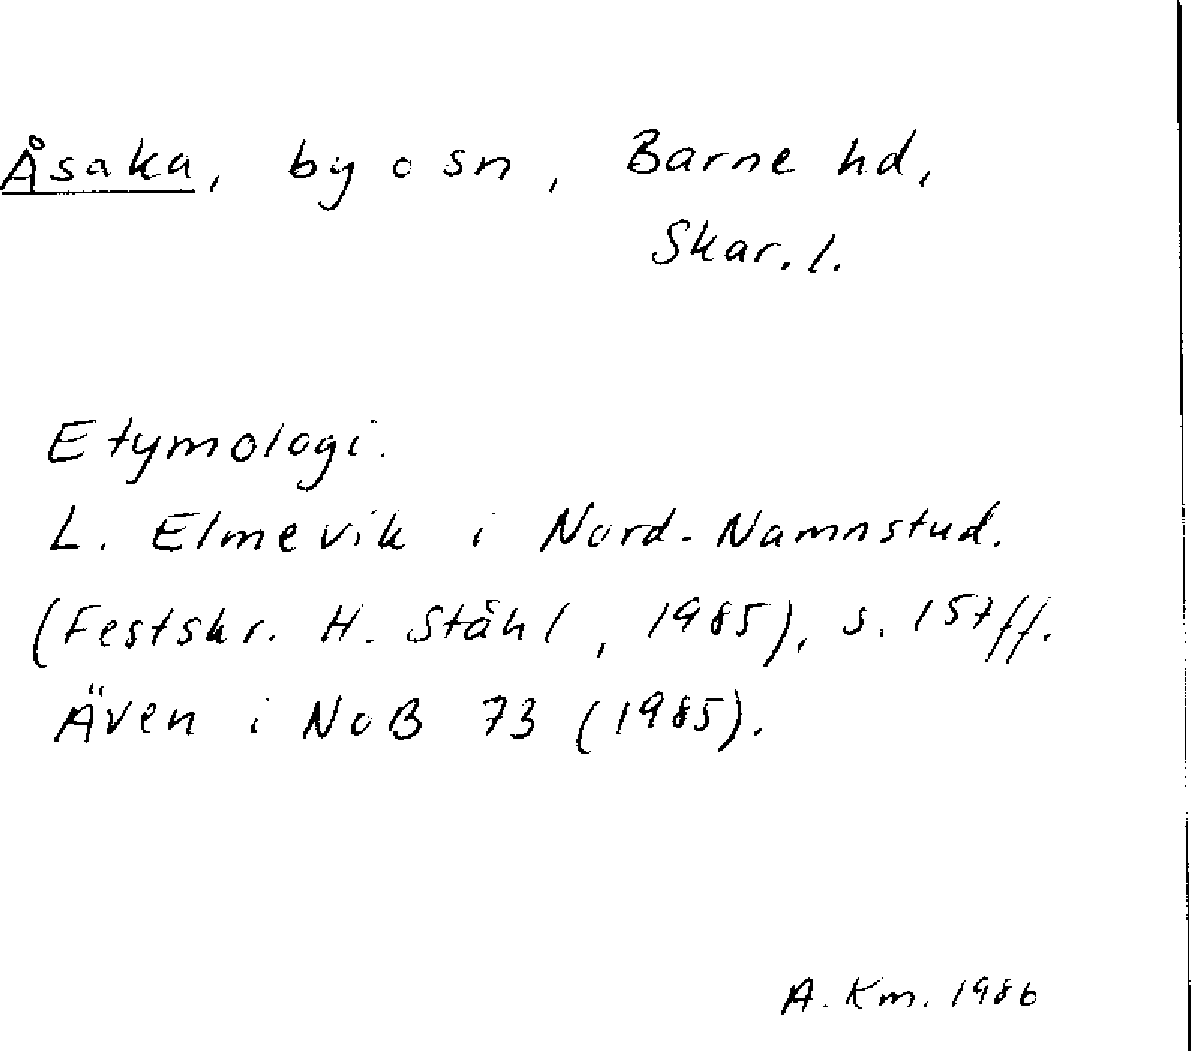 Åsaka, by o sn, Barne hd,
Skar. l.
Etymologi.
L. Elmevik i Nord. Namnstud.
(Festskr. H. Ståhl, 1985), s. 157ff.
Även i NoB 73 (1985).
A. Km. 1986